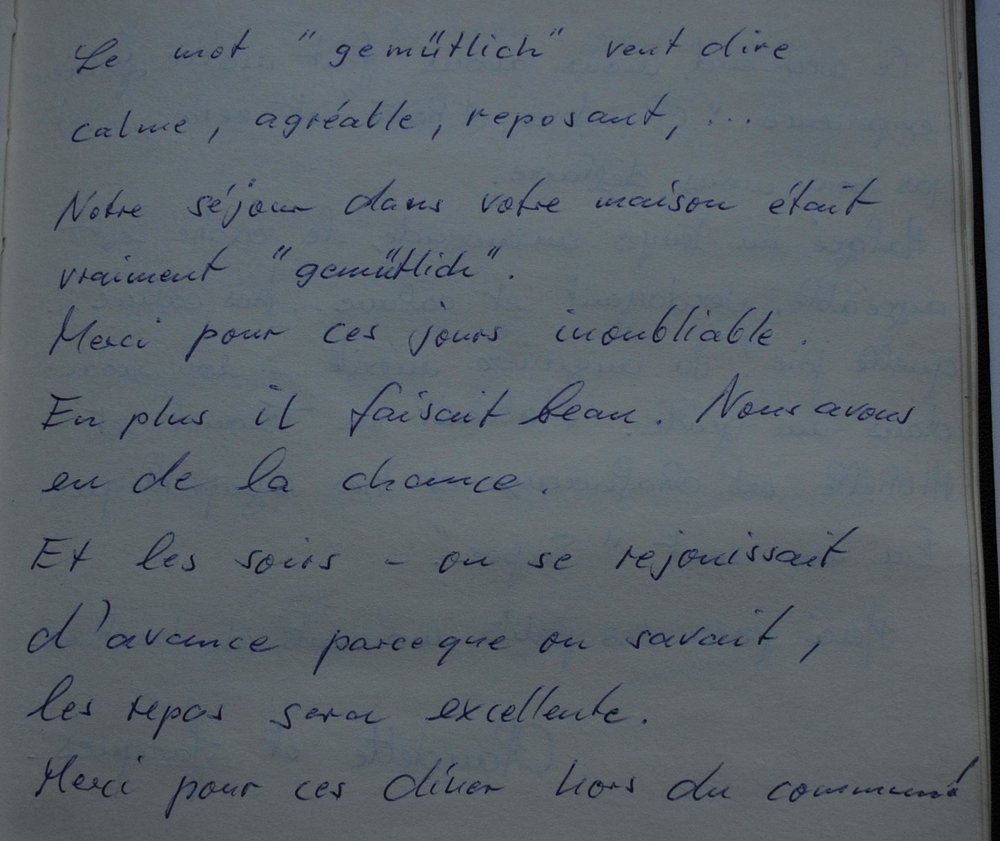 Le mot "gemütlich" veut dire
calme, agréable, reposant, ...
Notre séjour dans votre maison était
vraiment "gemütlich".
Merci pour ces jours inoubliable.
En plus il faisait beau. Nous avons
eu de la chance.
Et les soirs - on se rejouissait
d'avance parceque on savait,
les repas sera excellente.
Merci pour ces dîner hors du